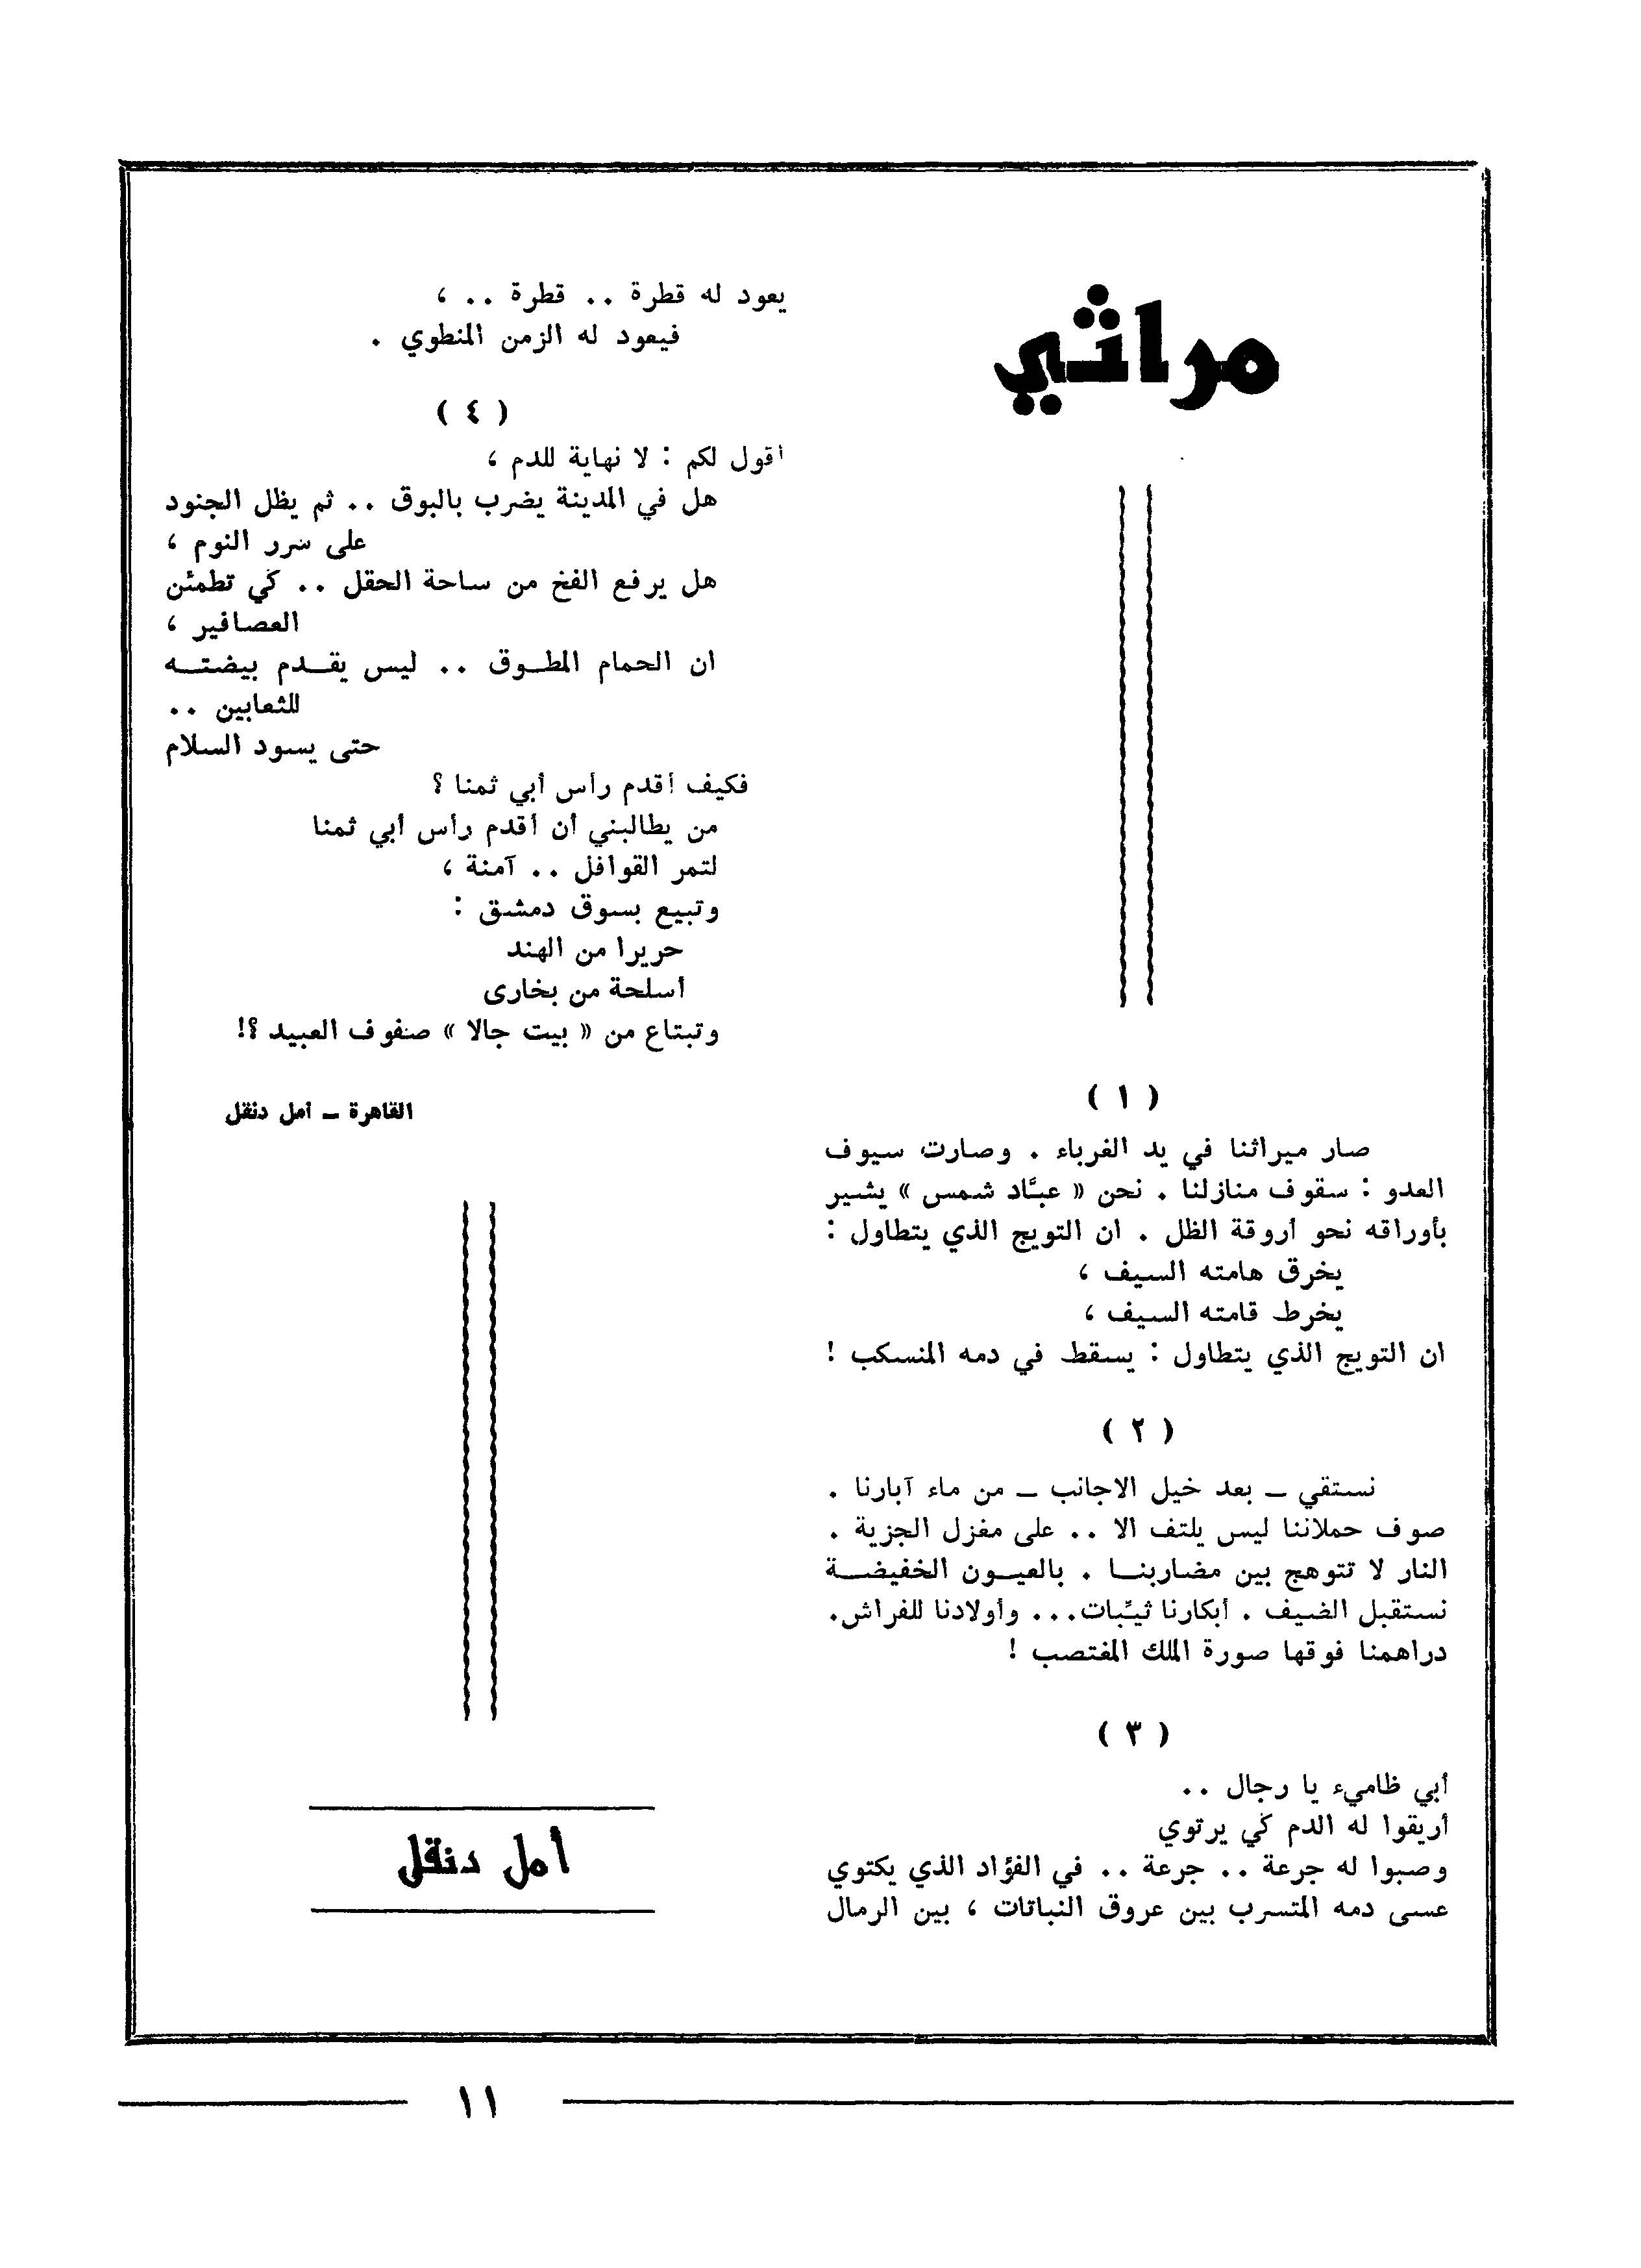 مراثي
( ١ )
صار ميراثنا في يد الغرباء . وصارت سيوف
العدو : سقوف منازلنا . نحن « عبَّاد شمس » يشير
بأوراقه نحو أروقة الظل . ان التويج الذي يتطاول :
يخرق هامته السيف ،
يخرط قامته السيف ،
ان التويج الذي يتطاول : يسقط في دمه المنسكب !
( ٢ )
نستقي – بعد خيل الاجانب – من ماء آبارنا .
صوف حملاننا ليس يلتف الا .. على مغزل الجزية .
النار لا تتوهج بين مضاربنا . بالعيون الخفيضة
نستقبل الضيف . أبكارنا ثيِّبات... وأولادنا للفراش.
دراهمنا فوقها صورة الملك المغتصب !
( ٣ )
أبي ظاميء يا رجال ..
أريقوا له الدم كي يرتوي
وصبوا له جرعة .. جرعة .. في الفؤاد الذي يكتوي
عسى دمه المتسرب بين عروق النباتات ، بين الرمال
يعود له قطرة .. قطرة .. ،
فيعود له الزمن المنطوي .
( ٤ )
أقول لكم : لا نهاية للدم ،
هل في المدينة يضرب بالبوق .. ثم يظل الجنود
على سرر النوم ،
هل يرفع الفخ من ساحة الحقل .. كي تطمئن
العصافير ،
ان الحمام المطوق .. ليس يقدم بيضته
للثعابين ..
حتى يسود السلام
فكيف أقدم رأس أبي ثمنا ؟
من يطالبني أن أقدم رأس أبي ثمنا
لتمر القوافل .. آمنة ،
وتبيع بسوق دمشق :
حريرا من الهند
أسلحة من بخارى
وتبتاع من « بيت جالا » صفوف العبيد ؟!
القاهرة – امل دنقل
أمل دنقل
١١